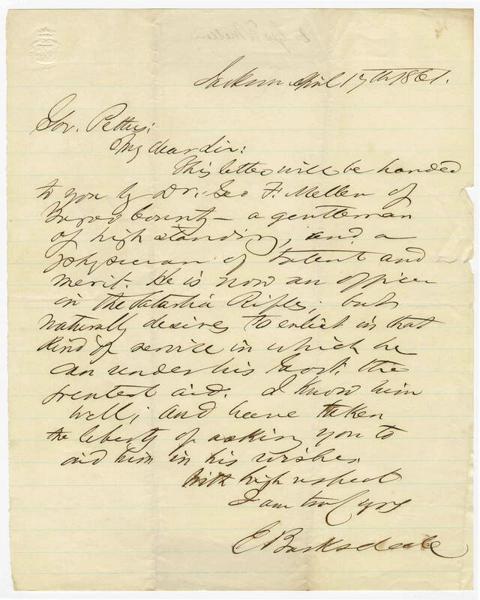 Jackson April 17th 1861.
Gov. Pettus:
My dear sir:
This letter will be handed
to you by Dr. Geo F. Mellen of
County — a gentleman
of high standing, and a
physician of talent and
merit. He is now an officer
in the Satartia Rifles; but
naturally desires to enlist in that
kind of service in which he
can under his the
greatest aid. I know him
well; and have taken
the liberty of asking you to
aid him in his wishes.
With high respect
I am truly yrs
E Barksdale